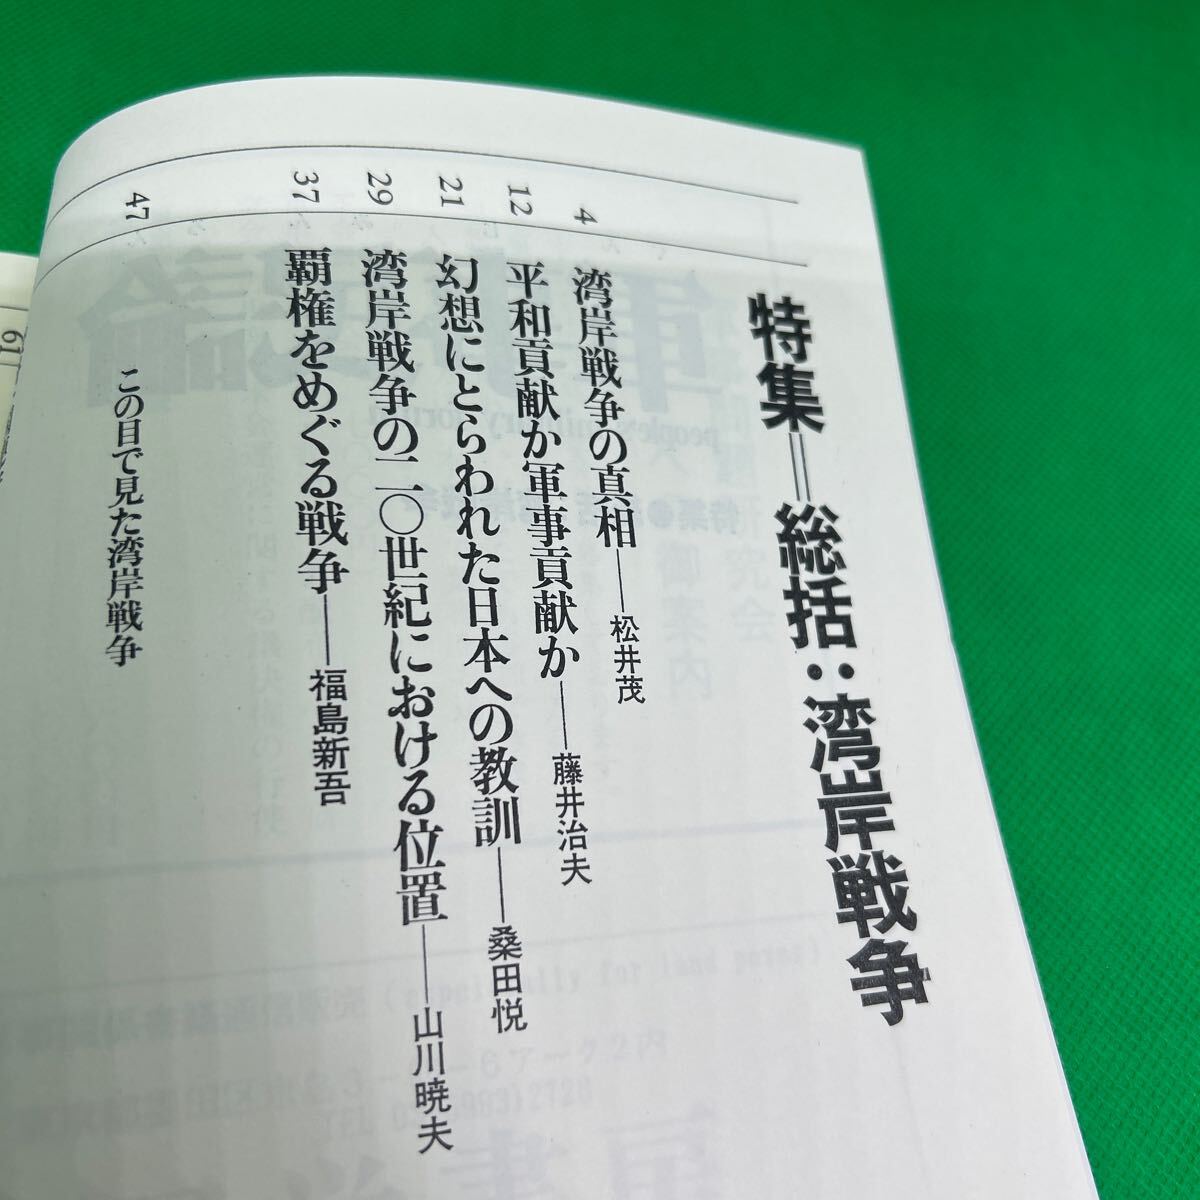 特集＝総括：湾岸戦争
4 湾岸戦争の真相――松井茂
12 平和貢献か軍事貢献か――藤井治夫
21 幻想にとらわれた日本への教訓――桑田悦
29 湾岸戦争の二〇世紀における位置――山川暁夫
37 覇権をめぐる戦争――福島新吾
47 この目で見た湾岸戦争
61